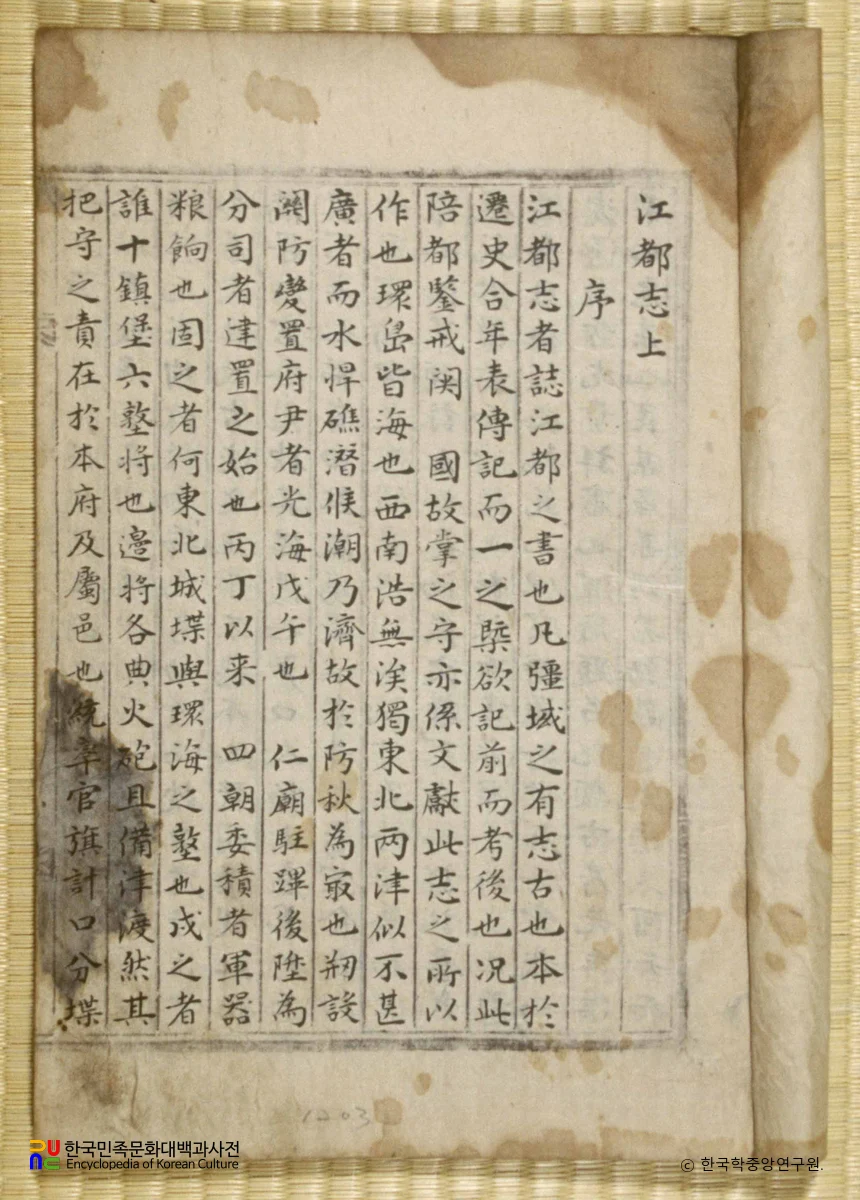 江都志上
序
江都志者誌江都之書也凡彊域之有志古也本於
遷史合年表傳記而一之槩欲記前而考後也况此
陪都鑒戒関國故掌之守亦係文獻此志之所以
作也環島皆海也西南浩無涘獨東北兩津似不甚
廣者而水悍礁潛候潮乃濟故於防秋為㝡也刱設
関防變置府尹者光海戊午也仁廟駐蹕後陞為
分司者建置之始也丙丁以来四朝委積者軍器
粮餉也固之者何東北城堞與環海之墪也戍之者
誰十鎮堡六墪將也邊將各典火砲且備津渡然其
把守之責在於本府及屬邑也統率官旗計口分堞
1203
한국민족문화대백과사전
Encyclopedia of Korean Culture
© 한국학중앙연구원.